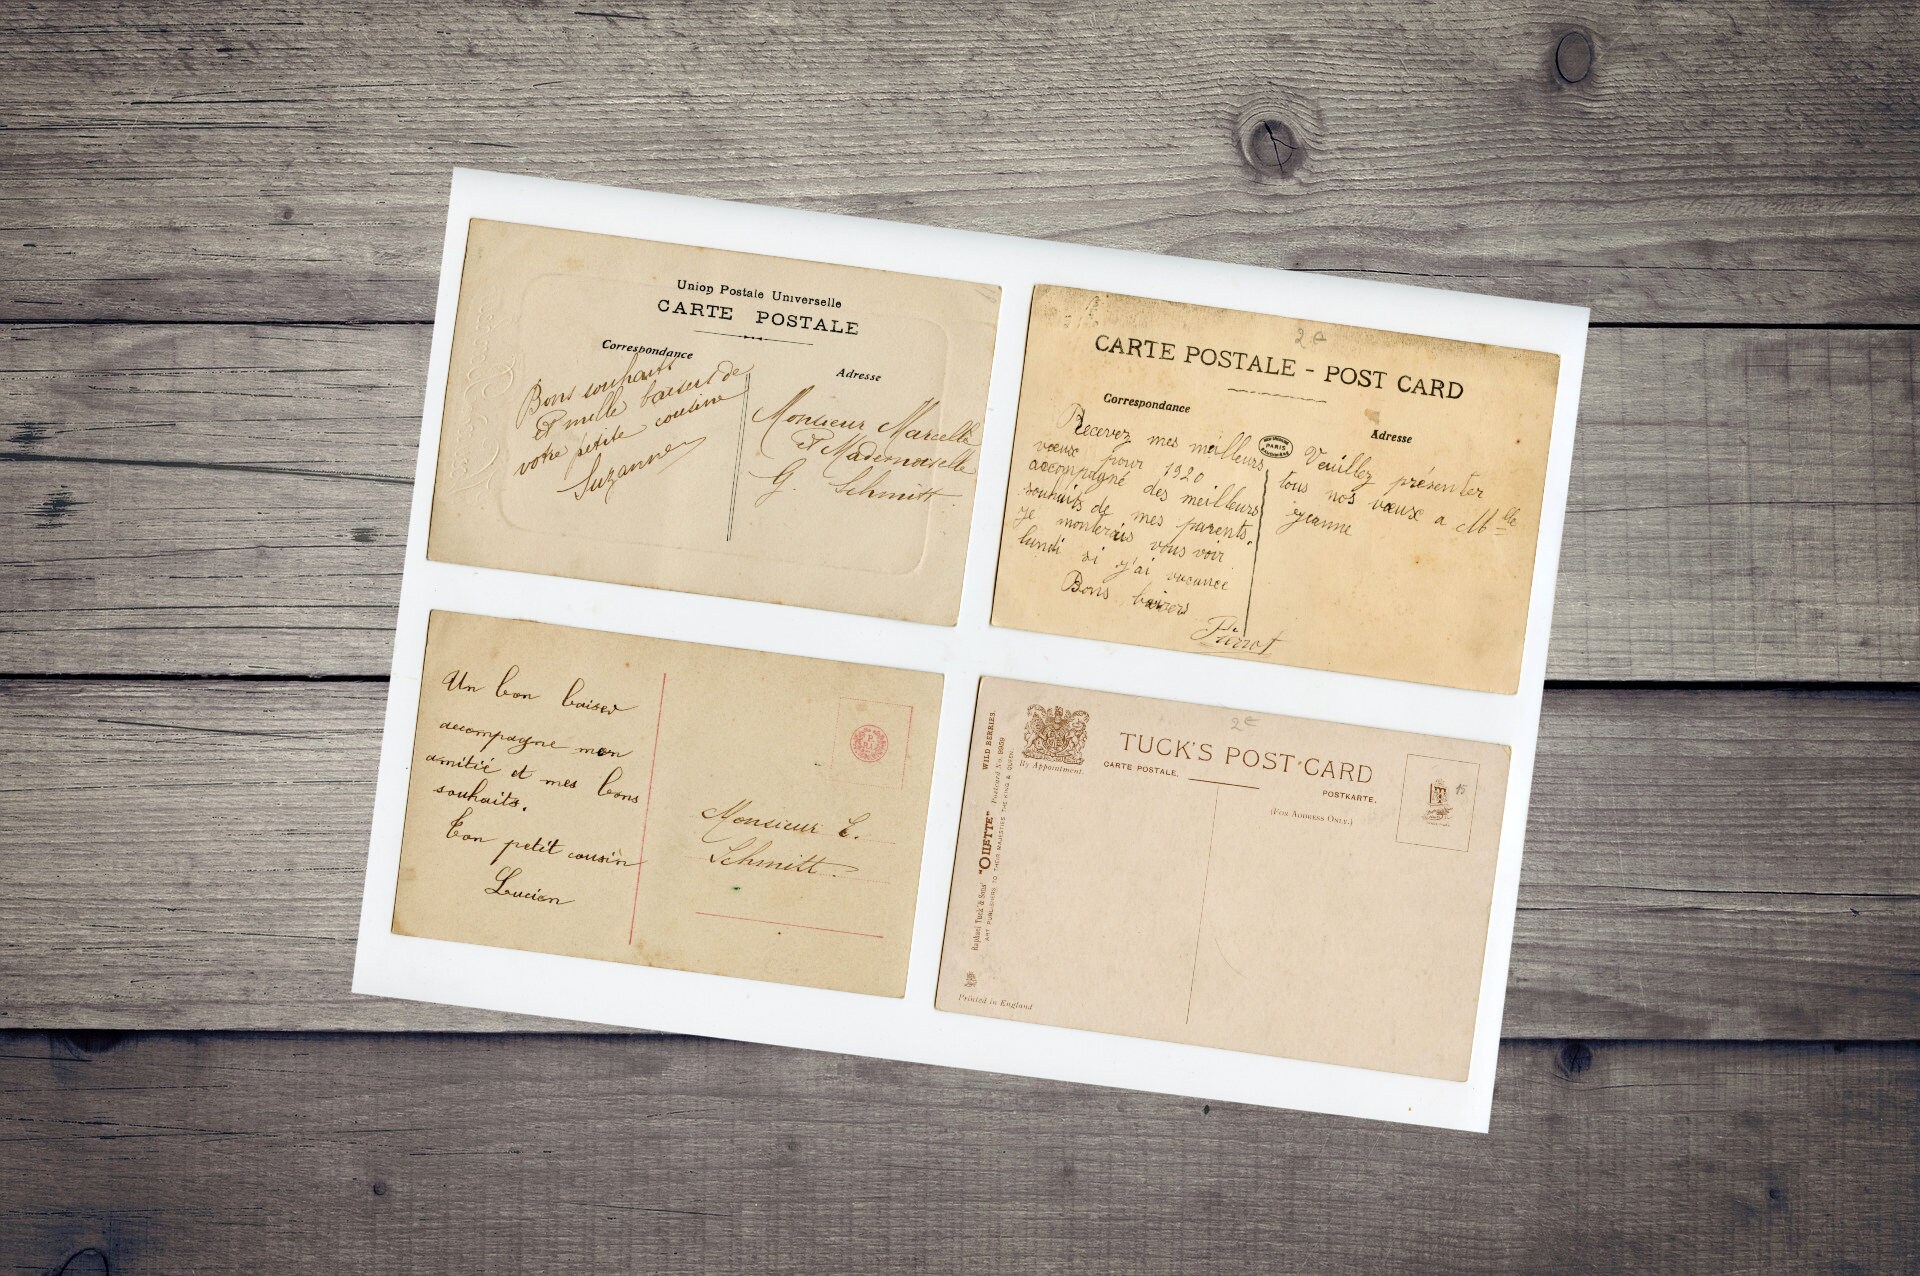 Union Postale Universelle
CARTE POSTALE
Correspondance
Bons souhaits
Et mille baisers de
votre petite cousine
Suzanne
Adresse
Monsieur Marcelle
et Mademoiselle
G. Schmitt
2€
CARTE POSTALE - POST CARD
Correspondance
Recevez mes meilleurs
vœux pour 1920
accompagné des meilleurs
souhaits de mes parents.
je monterais vous voir
lundi si j'ai vacance
Bons baisers
Pierrot
PARIS
Adresse
Veuillez présenter
tous nos vœux a Mlle
jeanne
Un bon baiser
accompagne mon
amitié et mes bons
souhaits.
Ton petit cousin
Lucien
Monsieur
Schmitt.
2€
By Appointment.
TUCK'S POST CARD
CARTE POSTALE.
POSTKARTE.
(FOR ADDRESS ONLY.)
15
WILD BERRIES.
Raphael Tuck & Sons' "OILETTE" Postcard No. 9959
ART PUBLISHERS TO THEIR MAJESTIES THE KING & QUEEN.
Printed in England